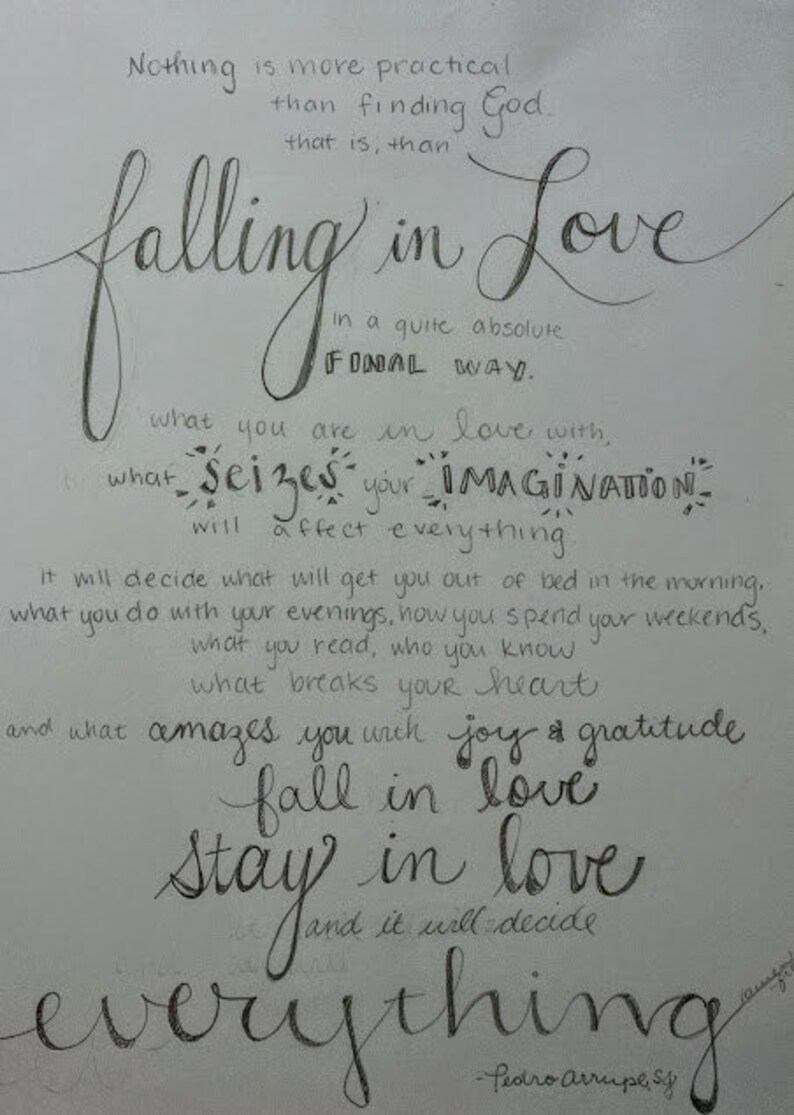 Nothing is more practical
than finding God.
that is, than
falling in Love
in a quite absolute
FINAL WAY.
what you are in love with,
what seizes your IMAGINATION
will affect everything.
it will decide what will get you out of bed in the morning.
what you do with your evenings, how you spend your weekends,
what you read, who you know
what breaks your heart
and what amazes you with joy & gratitude
fall in love
stay in love
and it will decide
everything
-Pedro Arrupe, SJ